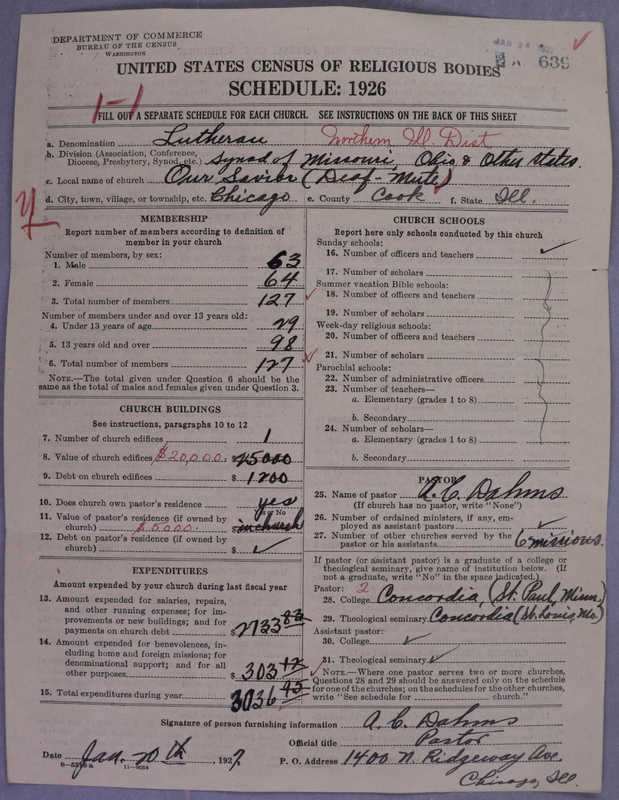 DEPARTMENT OF COMMERCE
BUREAU OF THE CENSUS
WASHINGTON
JAN 24
639
UNITED STATES CENSUS OF RELIGIOUS BODIES
SCHEDULE: 1926
1-1
FILL OUT A SEPARATE SCHEDULE FOR EACH CHURCH. SEE INSTRUCTIONS ON THE BACK OF THIS SHEET
a. Denomination Lutheran Northern Ill Dist
b. Division (Association, Conference, Diocese, Presbytery, Synod, etc.) Synod of Missouri, Ohio & Other states.
c. Local name of church Our Savior (Deaf-Mute)
d. City, town, village, or township, etc. Chicago e. County Cook f. State Ill.
MEMBERSHIP
Report number of members according to definition of
member in your church
Number of members, by sex:
1. Male 63
2. Female 64
3. Total number of members 127
Number of members under and over 13 years old:
4. Under 13 years of age 29
5. 13 years old and over 98
6. Total number of members 127
NOTE.—The total given under Question 6 should be the
same as the total of males and females given under Question 3.
CHURCH BUILDINGS
See instructions, paragraphs 10 to 12
7. Number of church edifices 1
8. Value of church edifices $20,000. $ 25000
9. Debt on church edifices $ 1200
10. Does church own pastor's residence yes
Yes or No
11. Value of pastor's residence (if owned by
church) $5000. $ in church
12. Debt on pastor's residence (if owned by
church) $ ✓
EXPENDITURES
Amount expended by your church during last fiscal year
13. Amount expended for salaries, repairs,
and other running expenses; for im-
provements or new buildings; and for
payments on church debt $ 2733 83
14. Amount expended for benevolences, in-
cluding home and foreign missions; for
denominational support; and for all
other purposes $ 303 12
15. Total expenditures during year $ 3036 95
CHURCH SCHOOLS
Report here only schools conducted by this church
Sunday schools:
16. Number of officers and teachers ✓
17. Number of scholars
Summer vacation Bible schools:
18. Number of officers and teachers
19. Number of scholars
Week-day religious schools:
20. Number of officers and teachers
21. Number of scholars
Parochial schools:
22. Number of administrative officers
23. Number of teachers—
a. Elementary (grades 1 to 8)
b. Secondary
24. Number of scholars—
a. Elementary (grades 1 to 8)
b. Secondary
PASTOR
25. Name of pastor A. C. Dahms
(If church has no pastor, write "None")
26. Number of ordained ministers, if any, em-
ployed as assistant pastors ✓
27. Number of other churches served by the
pastor or his assistants 6 missions.
If pastor (or assistant pastor) is a graduate of a college or
theological seminary, give name of institution below. (If
not a graduate, write "No" in the space indicated)
Pastor: 2
28. College Concordia, (St. Paul, Minn.)
29. Theological seminary Concordia (St. Louis, Mo.)
Assistant pastor:
30. College ✓
31. Theological seminary ✓
NOTE.—Where one pastor serves two or more churches,
Questions 28 and 29 should be answered only on the schedule
for one of the churches; on the schedules for the other churches,
write "See schedule for church."
Signature of person furnishing information A. C. Dahms
Official title Pastor
Date Jan. 20th, 1927. P. O. Address 1400 N. Ridgeway Ave.
Chicago, Ill.